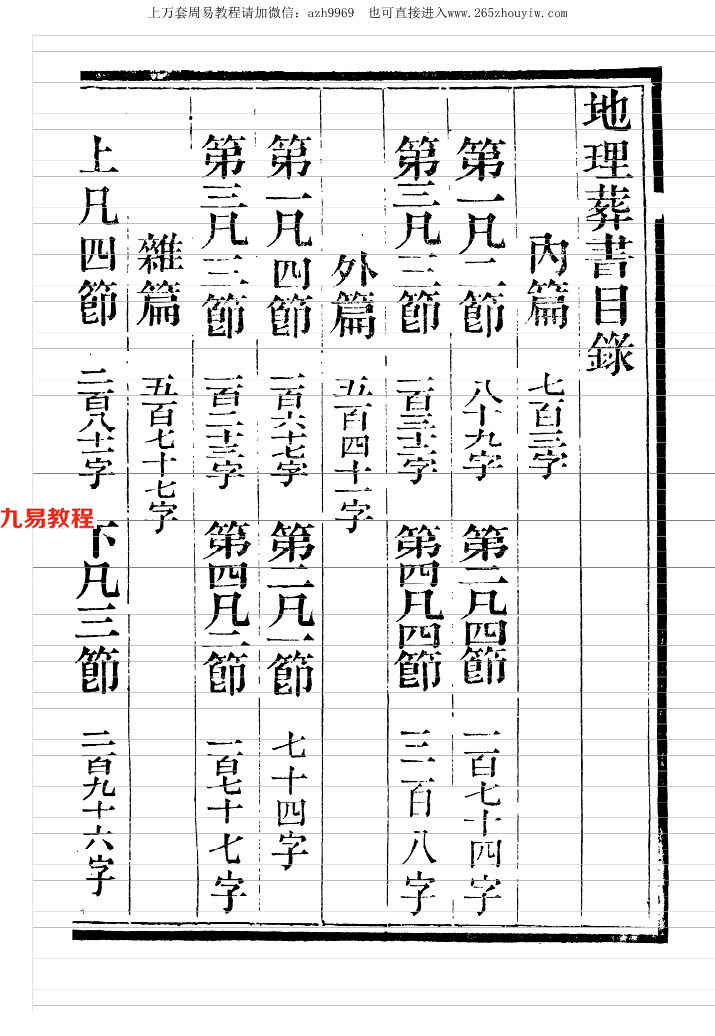 上万套周易教程请加微信：azh9969　也可直接进入www.265zhouyiw.com
地理葬書目錄
內篇　七百三字
第一凡二節　八十九字　第二凡四節　一百七十四字
第三凡三節　一百三十二字　第四凡四節　三百八字
外篇　五百四十一字
第一凡四節　一百六十七字　第二凡一節　七十四字
第三凡三節　一百二十三字　第四凡二節　一百七十七字
雜篇　五百七十七字
上凡四節　二百八十一字　下凡三節　二百九十六字
九易教程